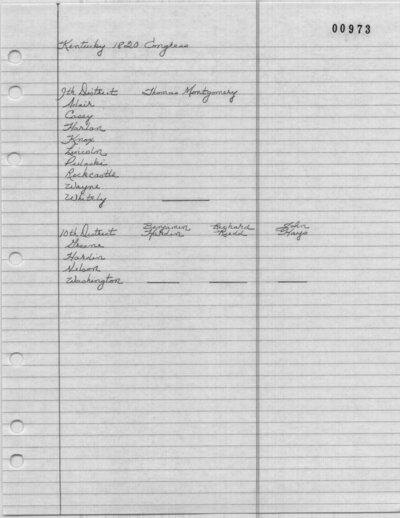 00973
Kentucky 1820 Congress
9th District Thomas Montgomery
Adair
Casey
Harlan
Knox
Lincoln
Pulaski
Rockcastle
Wayne
Whitely
10th District Benjamin Hardin Richard Rudd John Hays
Greene
Hardin
Nelson
Washington